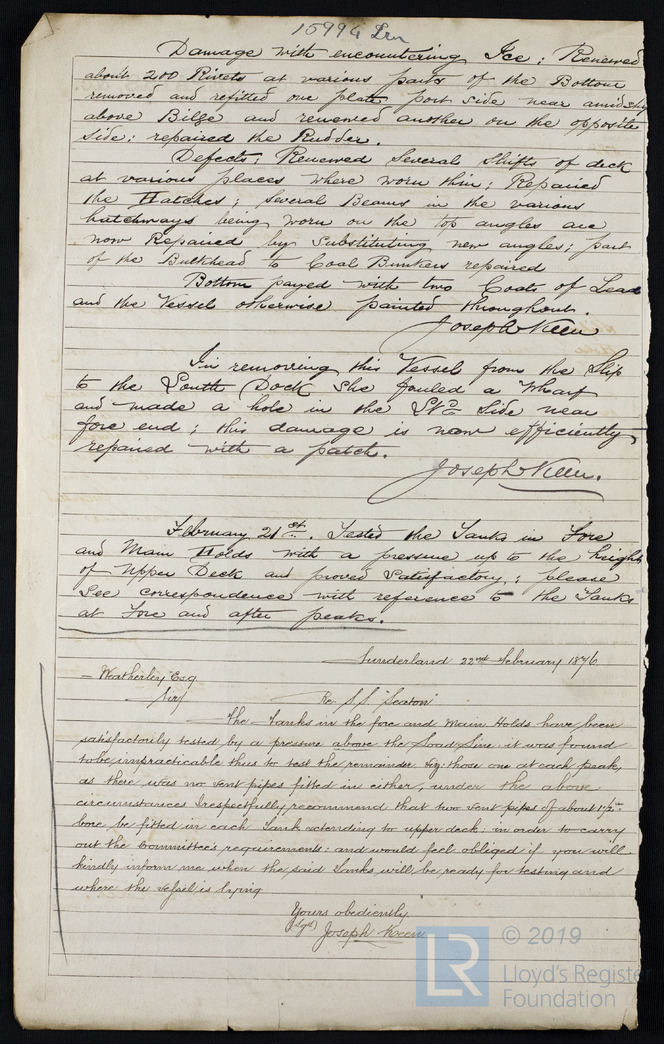 15994 Irn
Damage with encountering Ice: Renewed
about 200 Rivets at various parts of the Bottom
removed and refitted one plate port side near amidship
above Bilge and renewed another on the opposite
side: repaired the Rudder.
Defects: Renewed several Shifts of deck
at various places where worn thin; Repaired
the Hatches; several Beams in the various
hatchways being worn on the top angles are
now Repaired by substituting new angles; part
of the Bulkhead to Coal Bunkers repaired
Bottom payed with two Coats of Lead
and the Vessel otherwise painted throughout.
Joseph Keen
In removing this Vessel from the Slip
to the South Dock she fouled a Wharf
and made a hole in the Stbd Side near
fore end; this damage is now efficiently
repaired with a patch.
Joseph Keen.
February 21st. Tested the Tanks in Fore
and Main Holds with a pressure up to the height
of Upper Deck and proved satisfactory; please
See correspondence with reference to the Tanks
at Fore and after peaks.
Sunderland 22nd February 1876
— Weatherley Esq
Sir/ Re. S.S. "Seaton"
The Tanks in the fore and Main Holds have been
satisfactorily tested by a pressure above the Load Line: it was found
to be impracticable thus to test the remainder viz: those one at each peak,
as there was no vent pipes fitted in either, under the above
circumstances I respectfully recommend that two vent pipes of about 1½in
bore be fitted in each Tank extending to upper deck: in order to carry
out the Committee's requirements: and would feel obliged if you will
kindly inform me when the said Tanks will be ready for testing and
where the vessel is lying
Yours obediently
(Sgd) Joseph Keen
LR © 2019
Lloyd's Register
Foundation